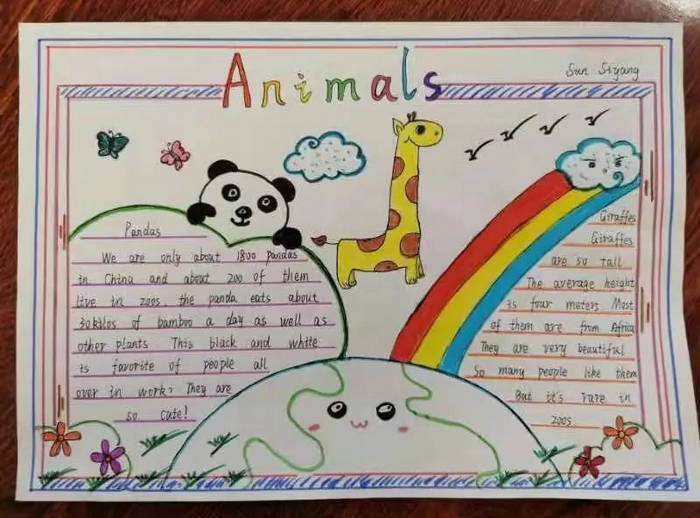 Animals
Sun Siyang
Pandas
We are only about 1800 pandas
in China and about 200 of them
live in zoos. the panda eats about
30kilos of bamboo a day as well as
other plants This black and white
is favorite of people all
over in work? They are
so cute!
Giraffes
Giraffes
are so tall
The average height
is four meters Most
of them are from Africa
They are very beautiful
So many people like them
But it's rare in
zoos